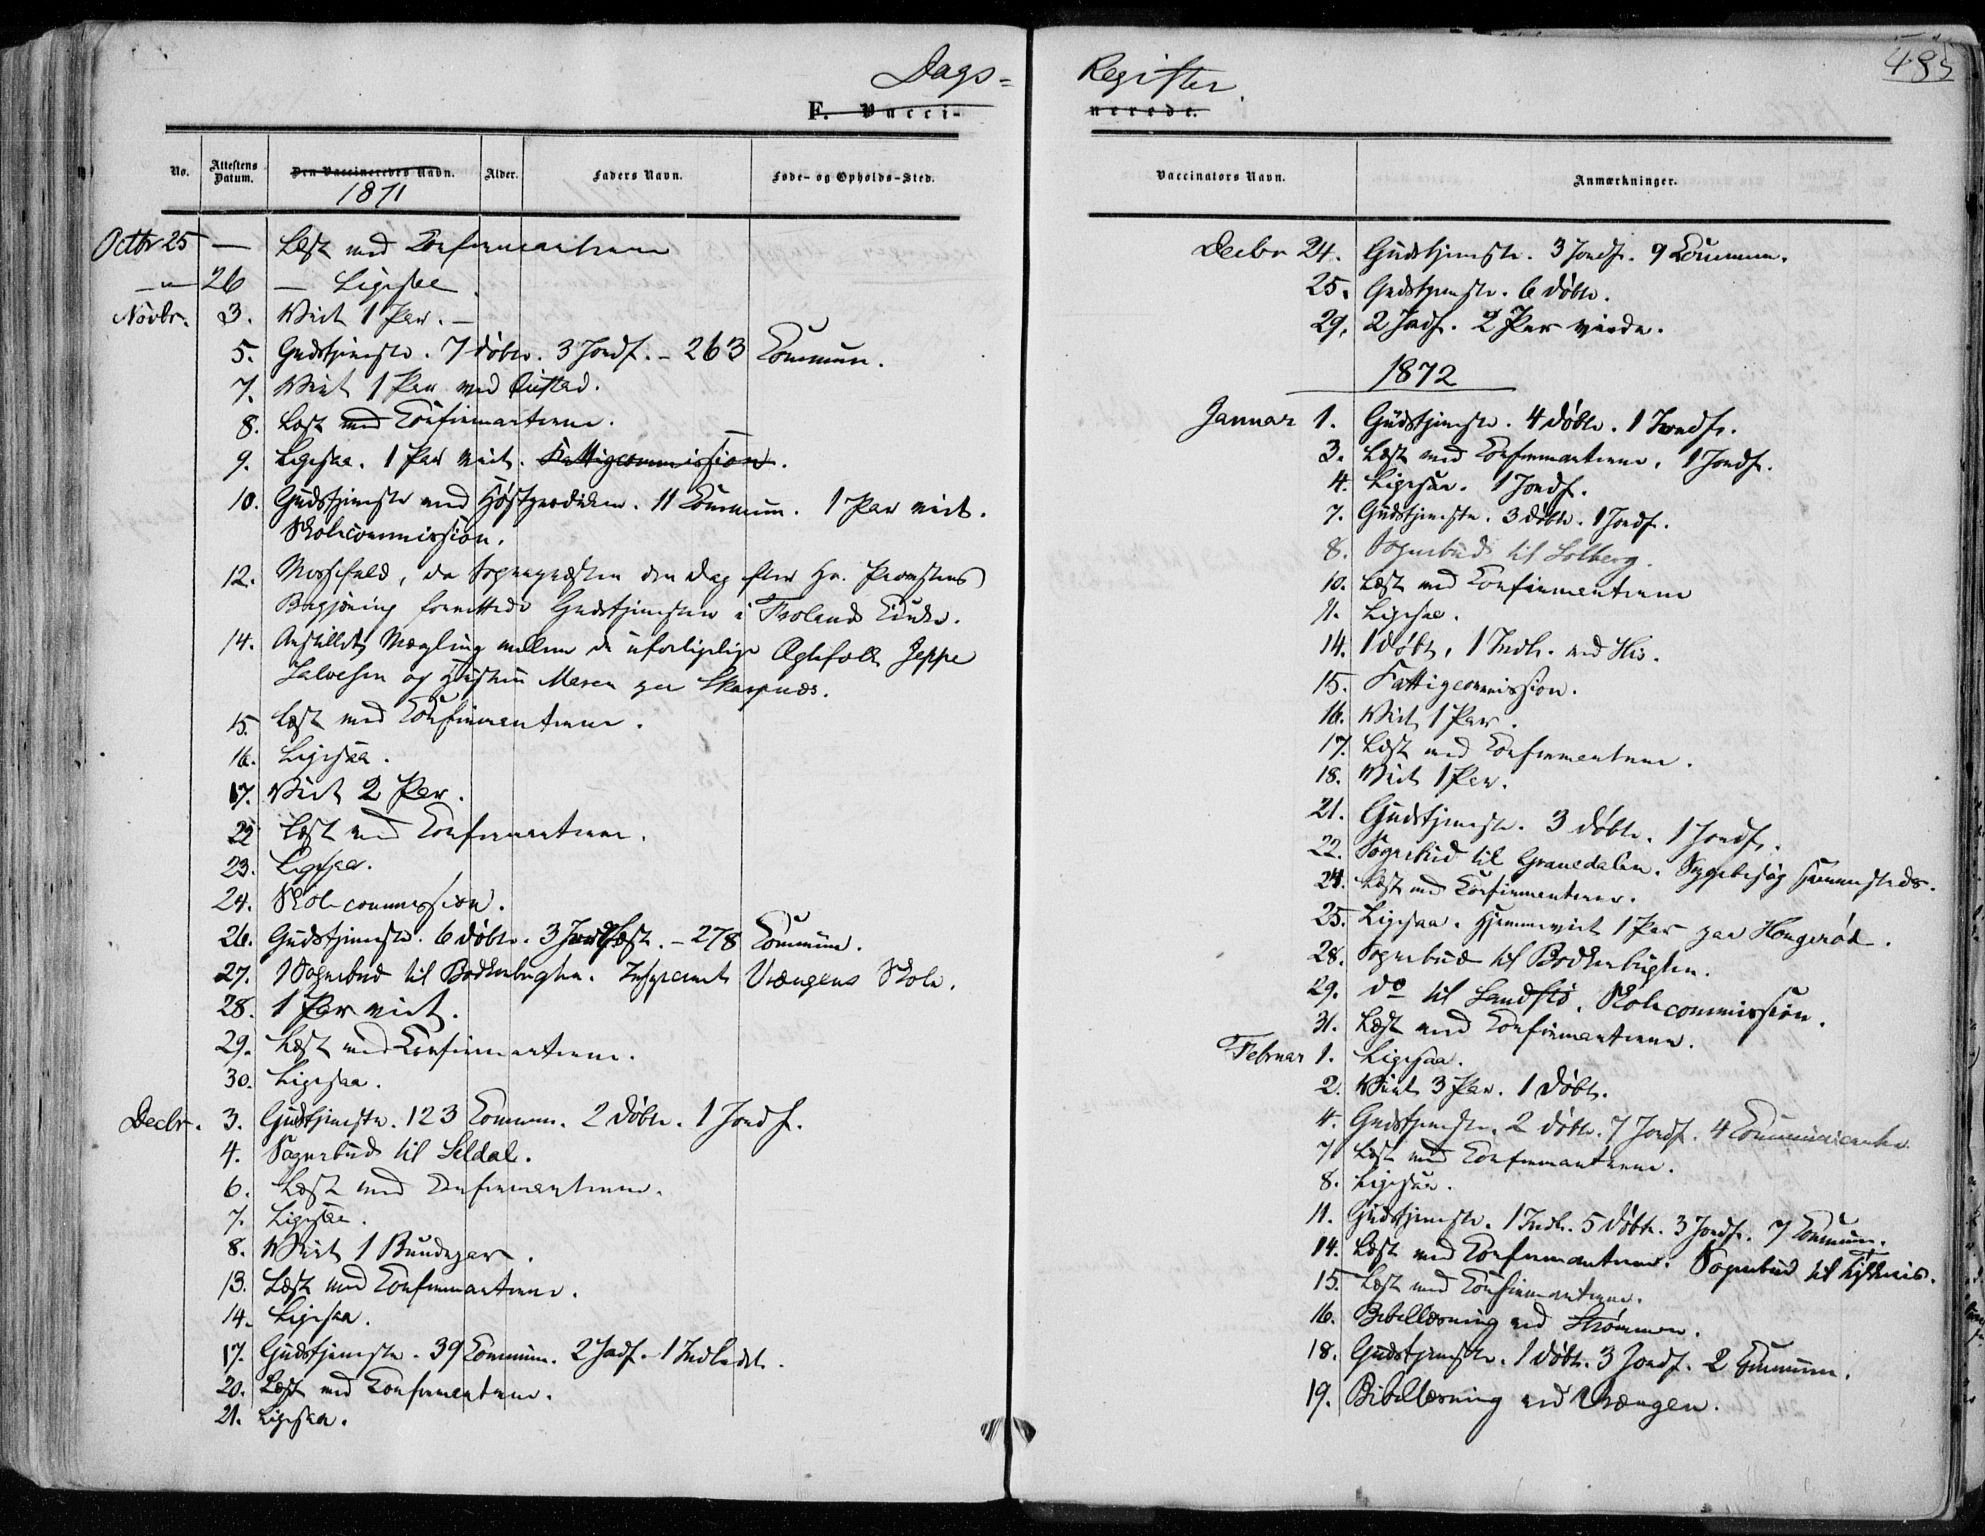 485
Dags-Register.
F. Vaccinerede.
No.
Attestens Datum.
Den Vaccineredes Navn.
Alder.
Faders Navn.
Føde- og Opholds-Sted.
Vaccinators Navn.
Anmærkninger.
1871
Octbr 25 — Læst med Confirmanterne
—"— 26 — Ligesaa
Novbr. 3. Viet 1 Par. —
5. Gudstjeneste. 7 døbte. 3 Jordf. – 263 Commun.
7. Viet 1 Par ved
8. Læst med Confirmanterne.
9. Ligesaa. 1 Par viet. Fattigcommission.
10. Gudstjeneste med Høstprædiken. 11 Commun. 1 Par viet.
Skolecommission.
12. Messefald, da Sognepræsten den Dag efter Hr. Provstens
Begjæring forrettede Gudstjenesten i Froland Kirke.
14. Anstillet Mægling mellem de uforligelige Ægtefolk Jeppe
Salvesen og Hustru Maren paa Skarpnes.
15. Læst med Confirmanterne.
16. Ligesaa.
17. Viet 2 Par.
22 Læst med Confirmanterne.
23. Ligesaa.
24. Skolecommission.
26. Gudstjeneste. 6 døbte. 3 Jordfæst. – 278 Commun.
27. 1 Sognebud til Bødkerbugten. Inspiceret Vrængens Skole.
28. 1 Par viet.
29. Læst med Confirmanterne.
30. Ligesaa.
Decbr. 3. Gudstjeneste. 123 Commun. 2 døbte. 1 Jordf.
4. Sognebud til Seldal.
6. Læst med Confirmanterne.
7. Ligesaa.
8. Viet 1 Brudepar.
13. Læst med Confirmanterne.
14. Ligesaa.
17. Gudstjeneste. 39 Commun. 2 Jordf. 1 Indledt.
20. Læst med Confirmanterne.
21. Ligesaa.
Decbr 24. Gudstjeneste. 3 Jordf. 9 Commun.
25. Gudstjeneste. 6 døbte.
29. 2 Jordf. 2 Par viede.
1872
Januar 1. Gudstjeneste. 4 døbte. 1 Jordf.
3. Læst med Confirmanterne. 1 Jordf.
4. Ligesaa. 1 Jordf.
7. Gudstjeneste. 3 døbte. 1 Jordf.
8. Sognebud til Solberg.
10. Læst med Confirmanterne
11. Ligesaa.
14. 1 døbt, 1 Indl. ved His.
15. Fattigcommission.
16. Viet 1 Par.
17. Læst med Confirmanterne.
18. Viet 1 Par.
21. Gudstjeneste. 3 døbte. 1 Jordf.
22. Sognebud til Granedalen. Sygebesøg sammesteds.
24. Læst med Confirmanterne.
25. Ligesaa. Hjemmeviet 1 Par paa Hougerød.
28. Sognebud til Bødkerbugten.
29. do til Sandstø. Skolecommission.
31. Læst med Confirmanterne.
Februar 1. Ligesaa.
2. Viet 3 Par. 1 døbt.
4. Gudstjeneste. 2 døbte. 7 Jordf. 4 Communicanter
7. Læst med Confirmanterne.
8. Ligesaa.
11. Gudstjeneste. 1 Indl. 5 døbte. 3 Jordf. 7 Commun.
14. Læst med Confirmanterne. Sognebud til
15. Læst med Confirmanterne.
16. Bibellæsning ved Strømmen.
18. Gudstjeneste. 1 døbt. 3 Jordf. 2 Commun.
19. Bibellæsning ved Vrængen.